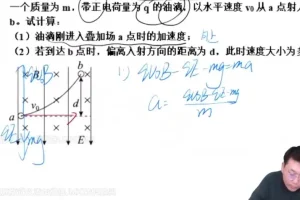 一个质量为 m，带正电荷量为 q 的油滴，以水平速度 v₀ 从 a 点射入
b。试计算：
（1）油滴刚进入叠加场 a 点时的加速度；
（2）若到达 b 点时，偏离入射方向的距离为 d，此时速度大小为多
1) qv₀B - qE - mg = ma
a = qv₀B - qE - mg / m
qv₀B
B
b
v₀
d
a
qE
mg
E